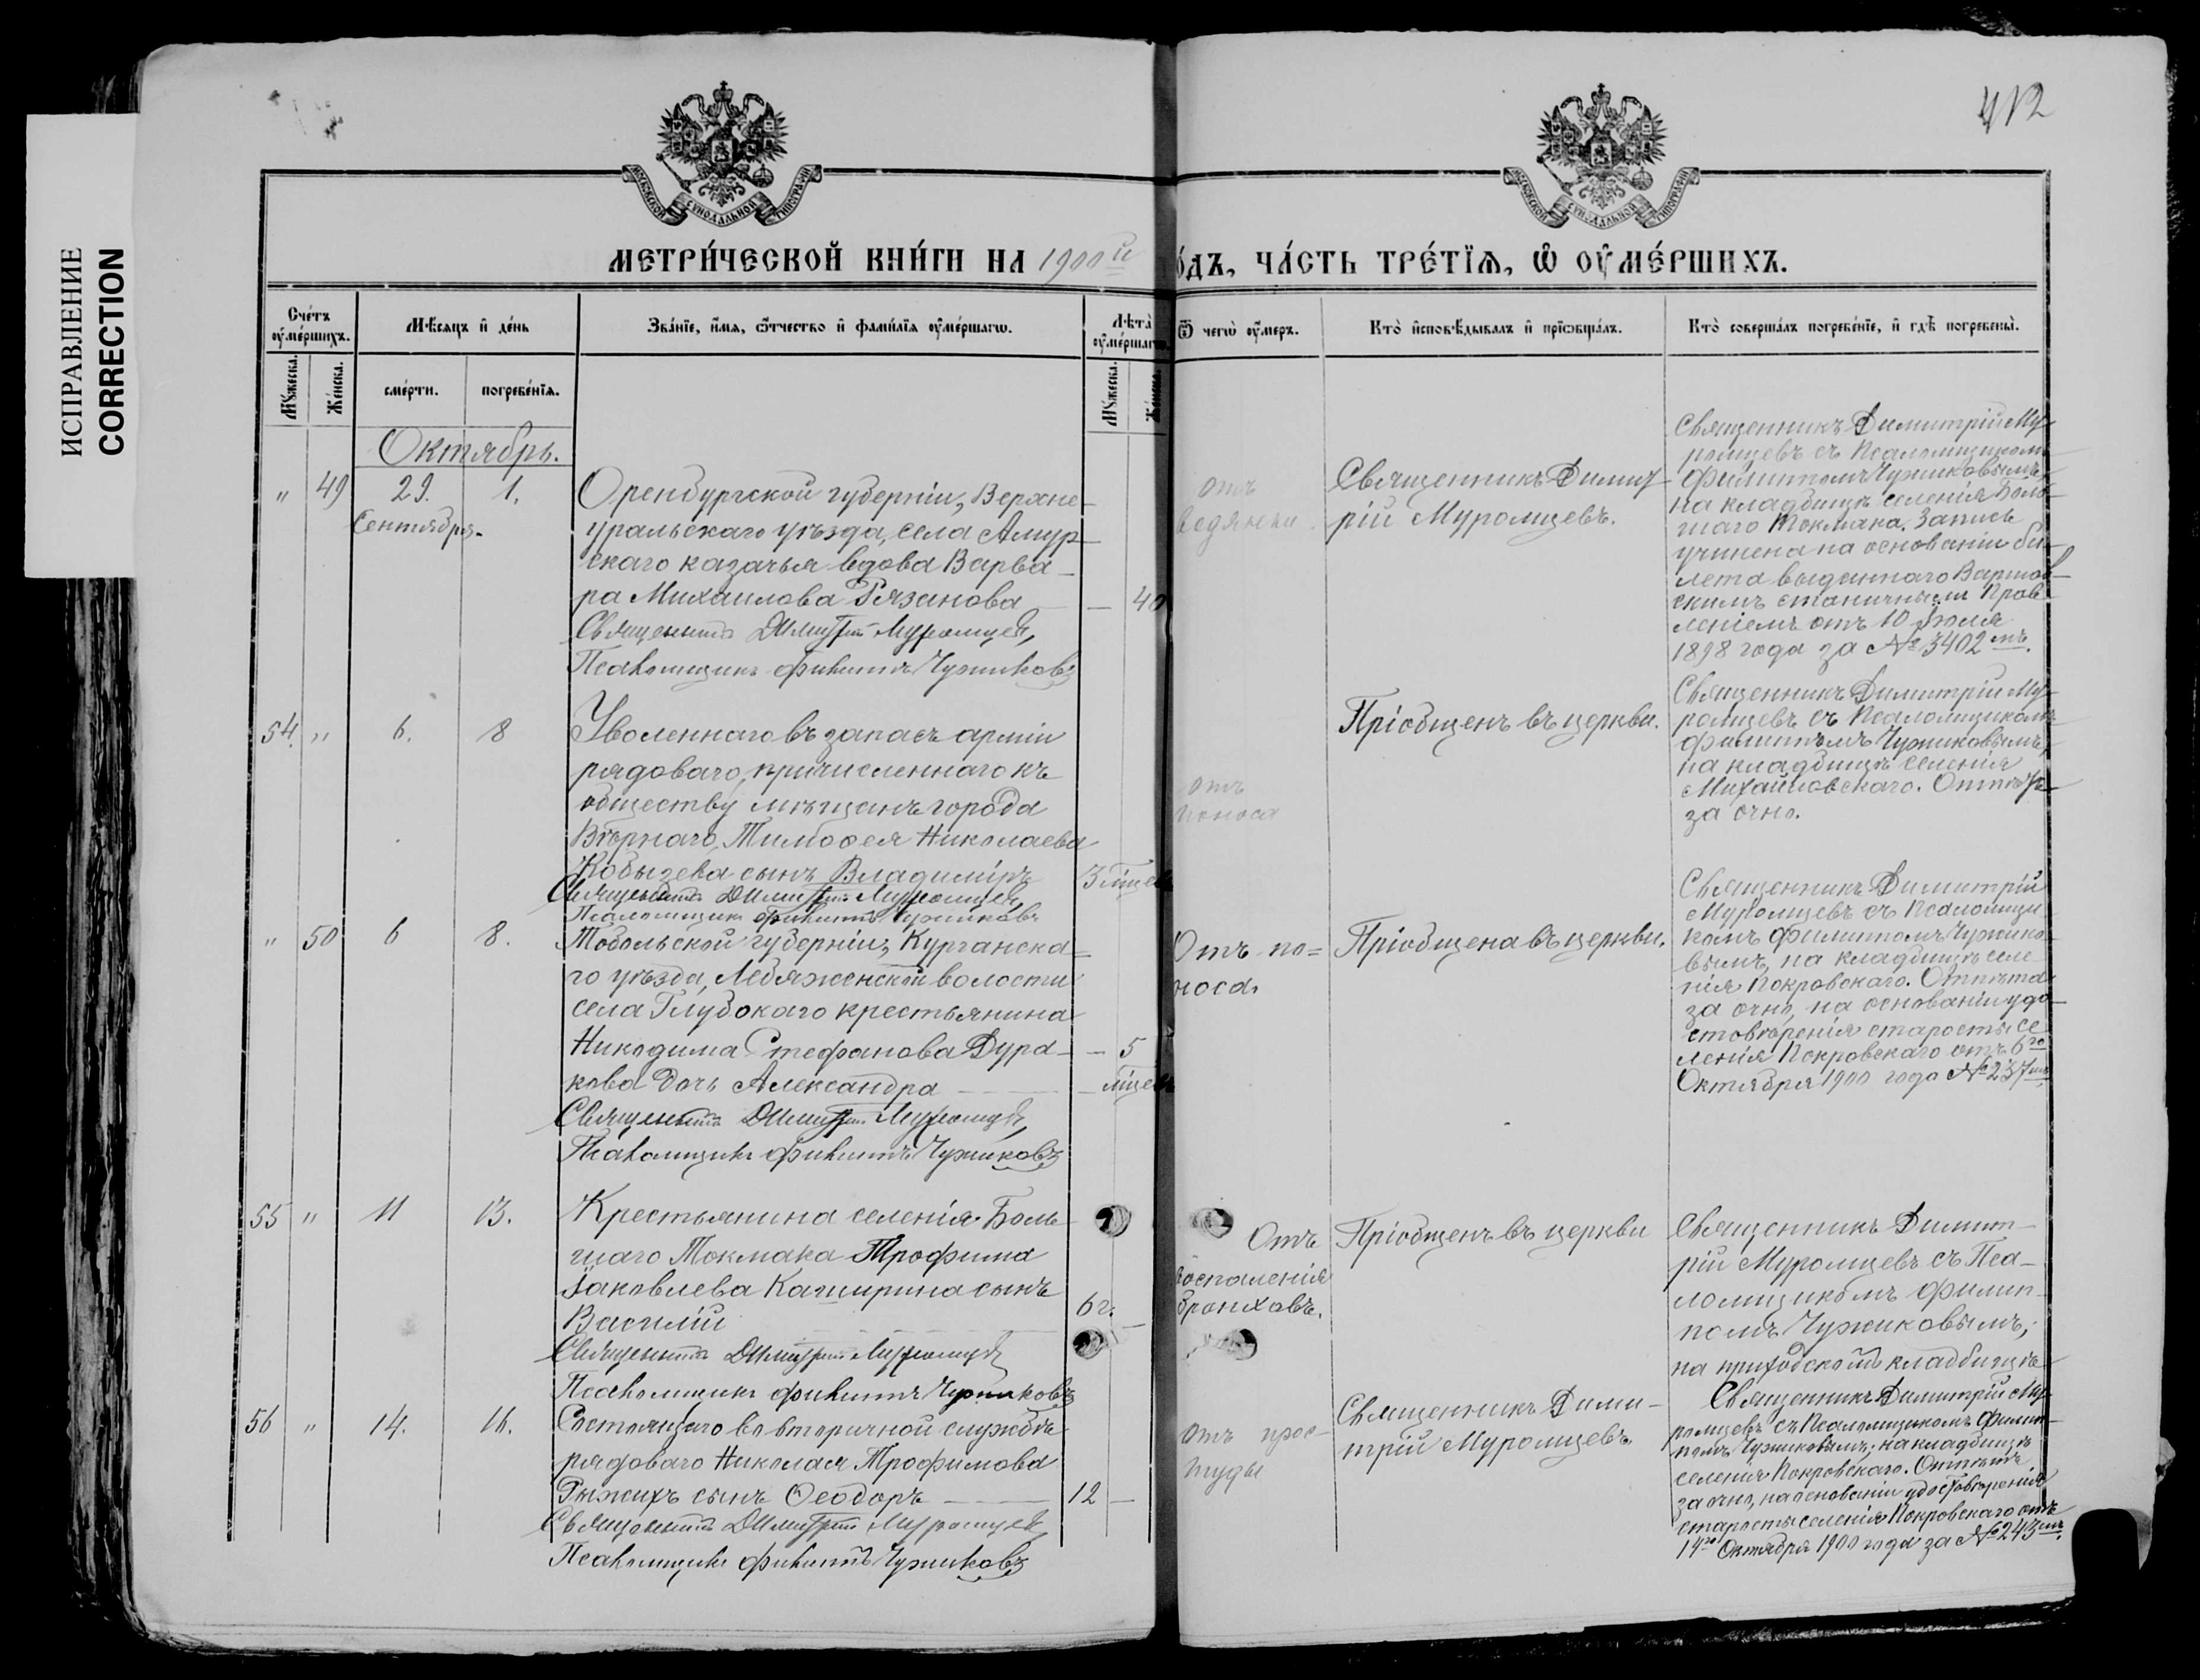 ИСПРАВЛЕНИЕ
CORRECTION
412
МОСКОВСКОЙ СѴНОДАЛЬНОЙ ТИПОГРАФІИ
МОСКОВСКОЙ СѴНОДАЛЬНОЙ ТИПОГРАФІИ
МЕТРИ́ЧЕСКОЙ КНИ́ГИ НА 1900й
о́дъ, ЧА́СТЬ ТРЕ́ТЇѦ, Ѽ ОУМЕ́РШИХЪ.
Сче́тъ оуме́ршихъ.
Мꙋжеска.
Же́нска.
Мѣсяцъ и де́нь
сме́рти.
погребе́нїѧ.
Зва́нїе, и́мѧ, ѻтчество и фами́лїѧ оуме́ршагѡ.
Лѣта̀ оуме́ршагѡ
Мꙋжеска.
Же́нска.
Ѿ чегѡ̀ оу́меръ.
Кто̀ исповѣ́дывалъ и прїѡбща́лъ.
Кто̀ соверша́лъ погребе́нїе, и гдѣ̀ погребены̀.
Октябрь.
" 49 29. 1.
Сентября.
Оренбургской губерніи, Верхне-
уральскаго уѣзда, села Амур-
скаго казачья вдова Варва-
ра Михаилова Рязанова — 40
Священникъ Димитрій Муромцевъ,
Псаломщикъ Филиппъ Чужиковъ
отъ
водянки.
Священникъ Димит-
рій Муромцевъ.
Священникъ Димитрій Му-
ромцевъ съ Псаломщикомъ
Филиппомъ Чужиковымъ,
на кладбищѣ селенія Боль-
шаго Токмака. Запись
учинена на основаніи би-
лета выданнаго Варшав-
скимъ станичнымъ Прав-
леніемъ отъ 10 Іюля
1898 года за № 3402мъ.
54. " 6. 8
Уволеннаго въ запасъ арміи
рядоваго, причисленнаго къ
обществу мѣщанъ города
Вѣрнаго, Тимоѳея Николаева
Кобызева сынъ Владиміръ 3 мѣсец
Священникъ Димитрій Муромцевъ,
Псаломщикъ Филиппъ Чужиковъ
отъ
поноса
Пріобщенъ въ церкви.
Священникъ Димитрій Му-
ромцевъ съ Псаломщикомъ
Филиппомъ Чужиковымъ,
на кладбищѣ селенія
Михайловскаго. Отпѣтъ
за очно.
" 50 6 8.
Тобольской губерніи, Курганска-
го уѣзда, Лебяженской волости
села Глубокаго крестьянина
Никодима Стефанова Дура- — 5
кова дочь Александра — мѣсец
Священникъ Димитрій Муромцевъ,
Псаломщикъ Филиппъ Чужиковъ
Отъ по=
носа.
Пріобщена въ церкви.
Священникъ Димитрій
Муромцевъ съ Псаломщи-
комъ Филиппомъ Чужико-
вымъ, на кладбищѣ селе-
нія Покровскаго. Отпѣта
за очно, на основаніи удо-
стовѣренія старосты се-
ленія Покровскаго отъ 6го
Октября 1900 года № 237мъ
55 " 11 13.
Крестьянина селенія Боль-
шаго Токмака Трофима
Іаковлева Каширина сынъ
Василій 6 г. —
Священникъ Димитрій Муромцевъ
Псаломщикъ Филиппъ Чужиковъ
Отъ
воспаленія
бронховъ.
Пріобщенъ въ церкви
Священникъ Димит-
рій Муромцевъ съ Пса-
ломщикомъ Филип-
помъ Чужиковымъ,
на приходскомъ кладбищѣ
56 " 14. 16.
Состоящаго во вторичной службѣ
рядоваго Николая Трофимова
Рыжихъ сынъ Ѳеодоръ — 12 —
Священникъ Димитрій Муромцевъ
Псаломщикъ Филиппъ Чужиковъ
Отъ прос-
туды
Священникъ Дими-
трій Муромцевъ
Священникъ Димитрій Му-
ромцевъ съ Псаломщикомъ Филип-
помъ Чужиковымъ, на кладбищѣ
селенія Покровскаго. Отпѣтъ
за очно, на основаніи удостовѣренія
старосты селенія Покровскаго отъ
14го Октября 1900 года за № 243мъ.